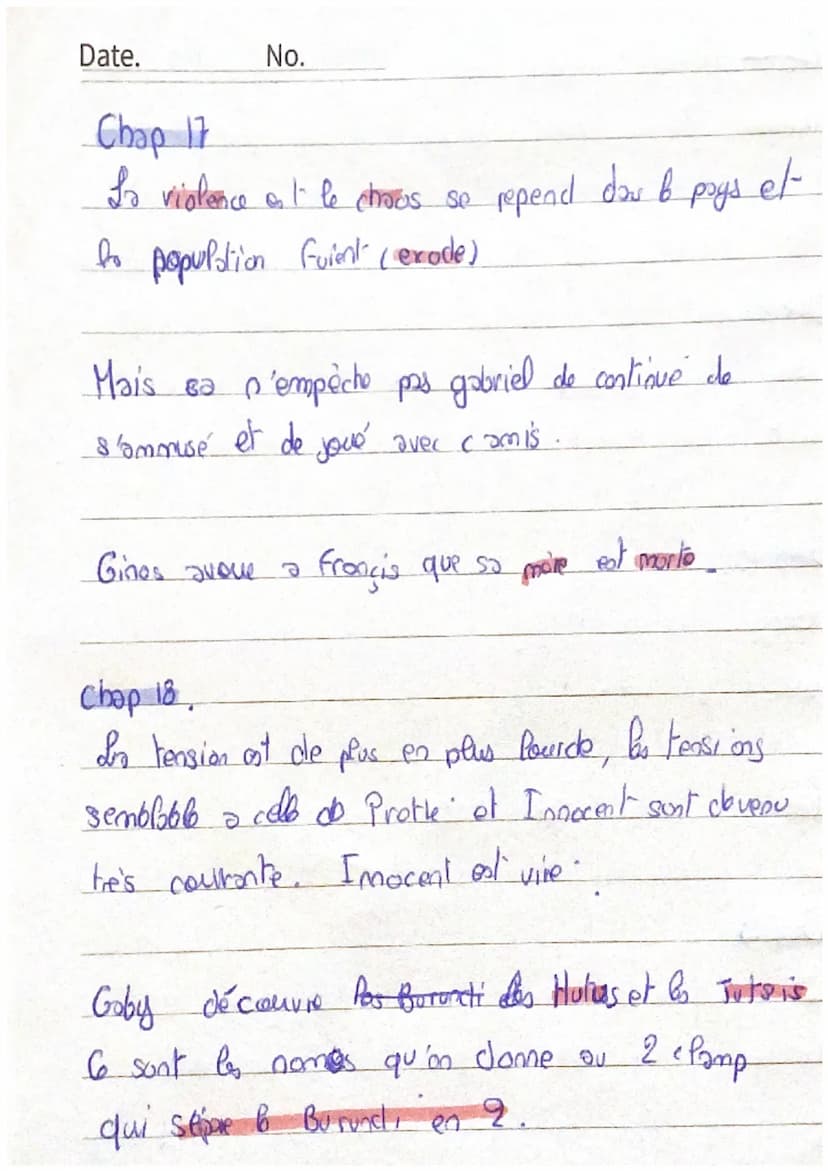 Date. No.
Chap 17
La violence et le chaos se repend dans le pays et
la population fuient (exode)
Mais sa n'empèche pas gabriel de continué de
s'ammusé et de joué avec c amis.
Ginos avoue a françis que sa mère est morte
Chap 18.
La tension est de plus en plus lourde, les tensions
semblable a celle de Prothé et Innocent sont devenu
très courante. Innocent est viré.
Gaby découvre les Burundi les Hutus et les Tutsis
Ce sont les noms qu'on donne au 2 clamp
qui sépare le Burundi en 2.